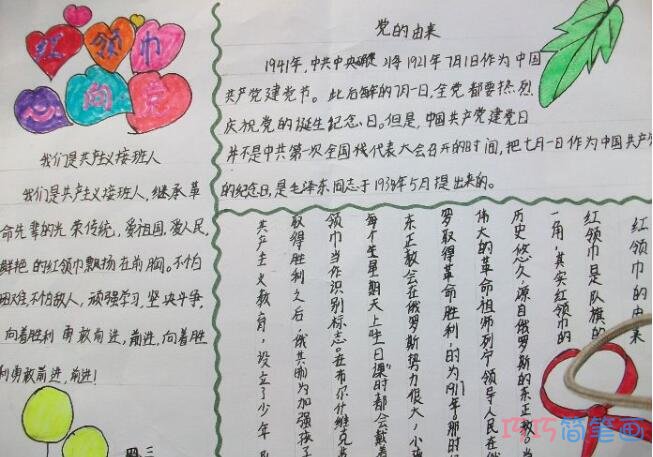 红领巾
心向党
我们是共产主义接班人
我们是共产主义接班人,继承革
命先辈的光荣传统,爱祖国,爱人民,
鲜艳的红领巾飘扬在前胸。不怕
困难,不怕敌人,顽强学习,坚决斗争,
向着胜利勇敢前进,前进,向着胜
利勇敢前进,前进!
党的由来
1941年,中共中央确定将1921年7月1日作为中国
共产党建党节。此后每年的7月一日,全党都要热烈
庆祝党的诞生纪念日。但是,中国共产党建党日
并不是中共第一次全国代表大会召开的时间,把七月一日作为中国共产党
的纪念日,是毛泽东同志于1938年5月提出来的。
红领巾的由来
红领巾是队旗的
一角,其实红领巾的
历史悠久,源自俄罗斯的东正教。当
伟大的革命祖师列宁领导人民在俄
罗取得革命胜利,时为1917年。那时
东正教会在俄罗斯势力很大,小孩
每个星期天上"主日课"时都会戴着
领巾当作识别标志。在布尔什维克
取得胜利之后,俄共即为加强孩子
共产主义教育,设立了少年队
巧巧简笔画